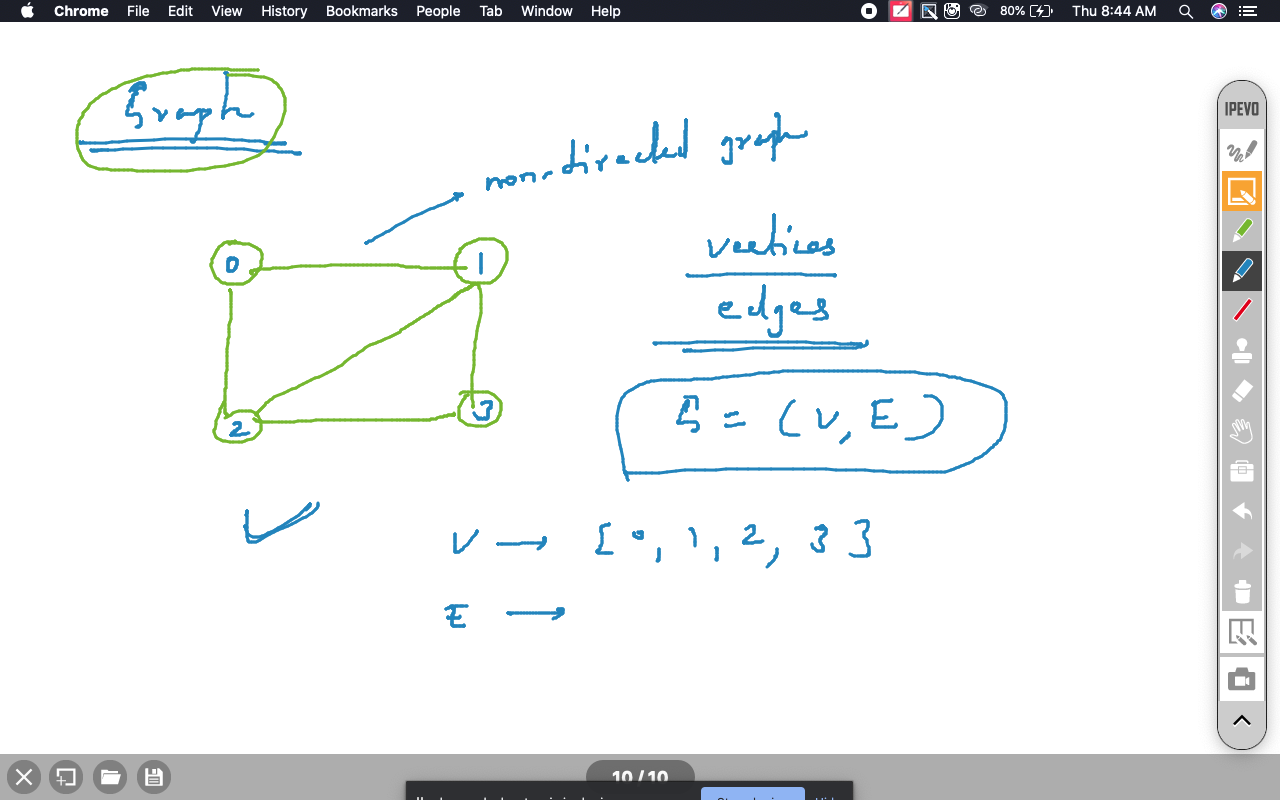 Chrome File Edit View History Bookmarks People Tab Window Help 80% Thu 8:44 AM
Graph
non-directed graph
IPEVO
0 1
vertices
edges
2 3
G = (V, E)
V → [0, 1, 2, 3]
E →
10 / 10